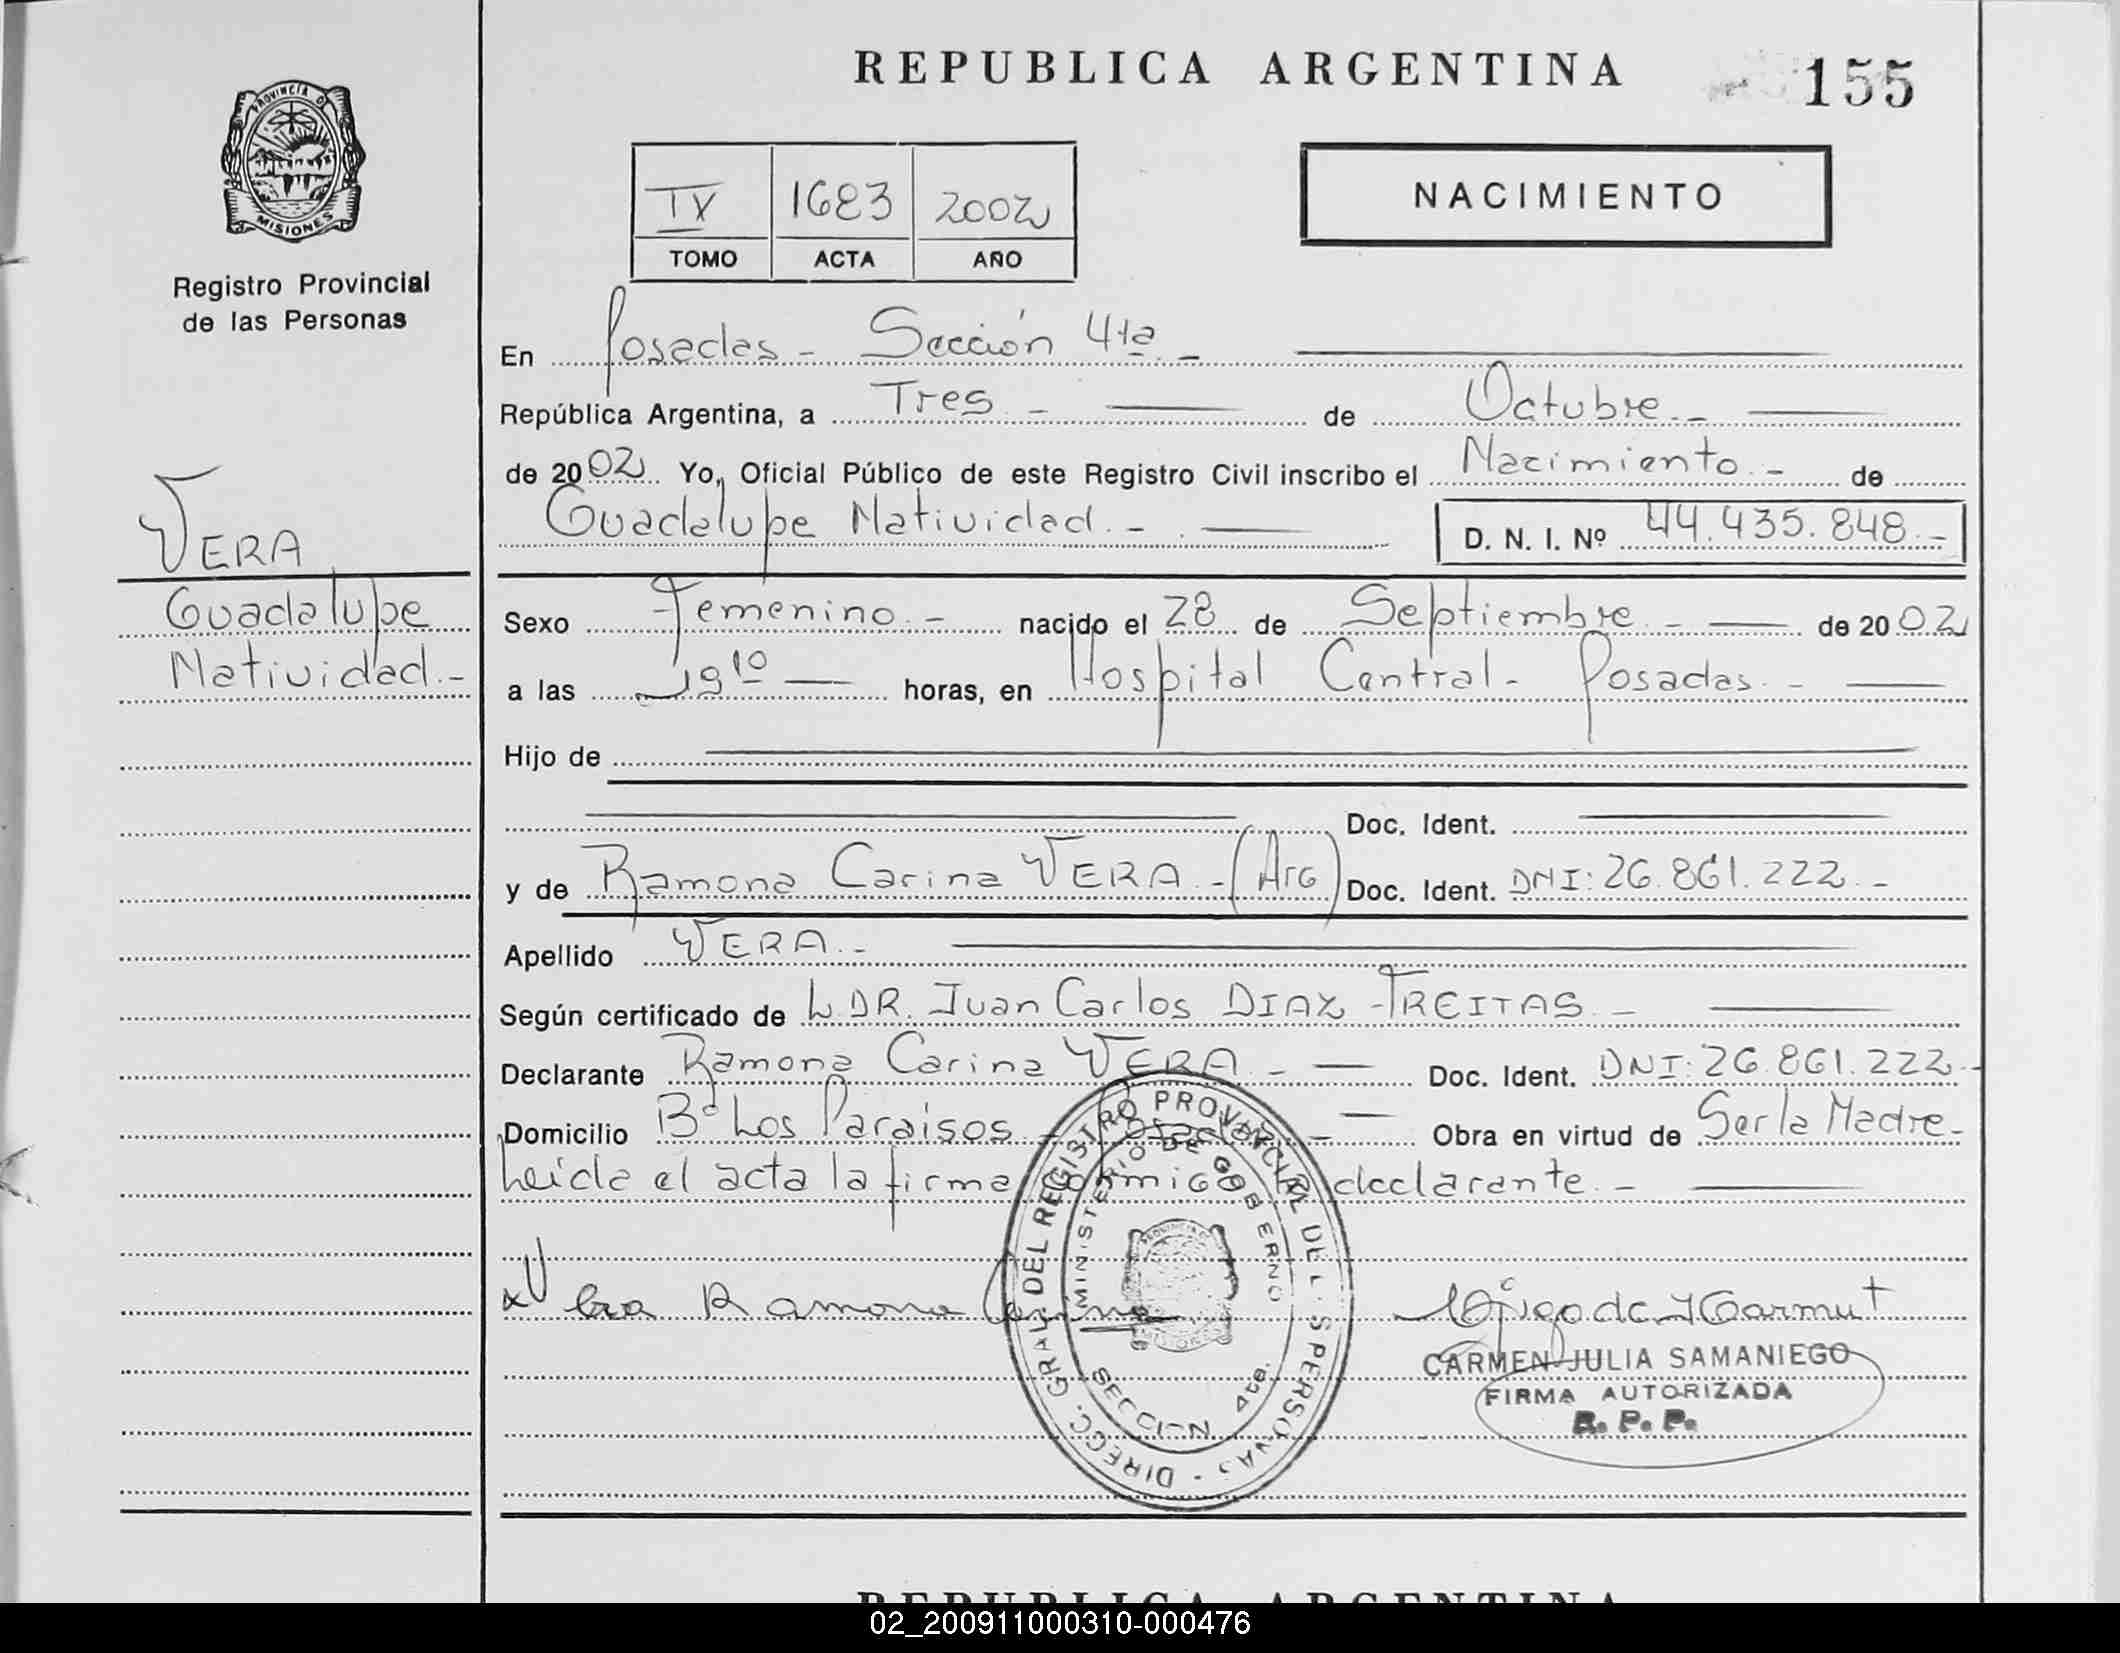 REPUBLICA ARGENTINA
155
PROVINCIA D
MISIONES
Registro Provincial
de las Personas
IV 1683 2002
TOMO ACTA AÑO
NACIMIENTO
En Posadas - Sección 4ta -
República Argentina, a Tres - de Octubre -
de 2002 Yo, Oficial Público de este Registro Civil inscribo el Nacimiento - de
Guadalupe Natividad - D. N. I. Nº 44.435.848.-
VERA
Guadalupe
Natividad.-
Sexo Femenino - nacido el 28 de Septiembre - de 2002
a las 19 10 horas, en Hospital Central - Posadas -
Hijo de
Doc. Ident.
y de Ramona Carina VERA - (Arg) Doc. Ident. DNI: 26.861.222 -
Apellido VERA.-
Según certificado de L DR. Juan Carlos DIAZ FREITAS -
Declarante Ramona Carina VERA - Doc. Ident. DNI: 26.861.222.-
Domicilio Bº Los Paraisos - Posadas - Obra en virtud de Ser la Madre -
Leida el acta la firma conmigo la declarante -
x Vera Ramona Carina
DIRECC. GRAL. DEL REGISTRO PROVINCIAL DE LAS PERSONAS
MINISTERIO DE GOBIERNO
SECCION 4ta.
CARMEN JULIA SAMANIEGO
FIRMA AUTORIZADA
R. P. P.
REPUBLICA ARGENTINA
02_200911000310-000476